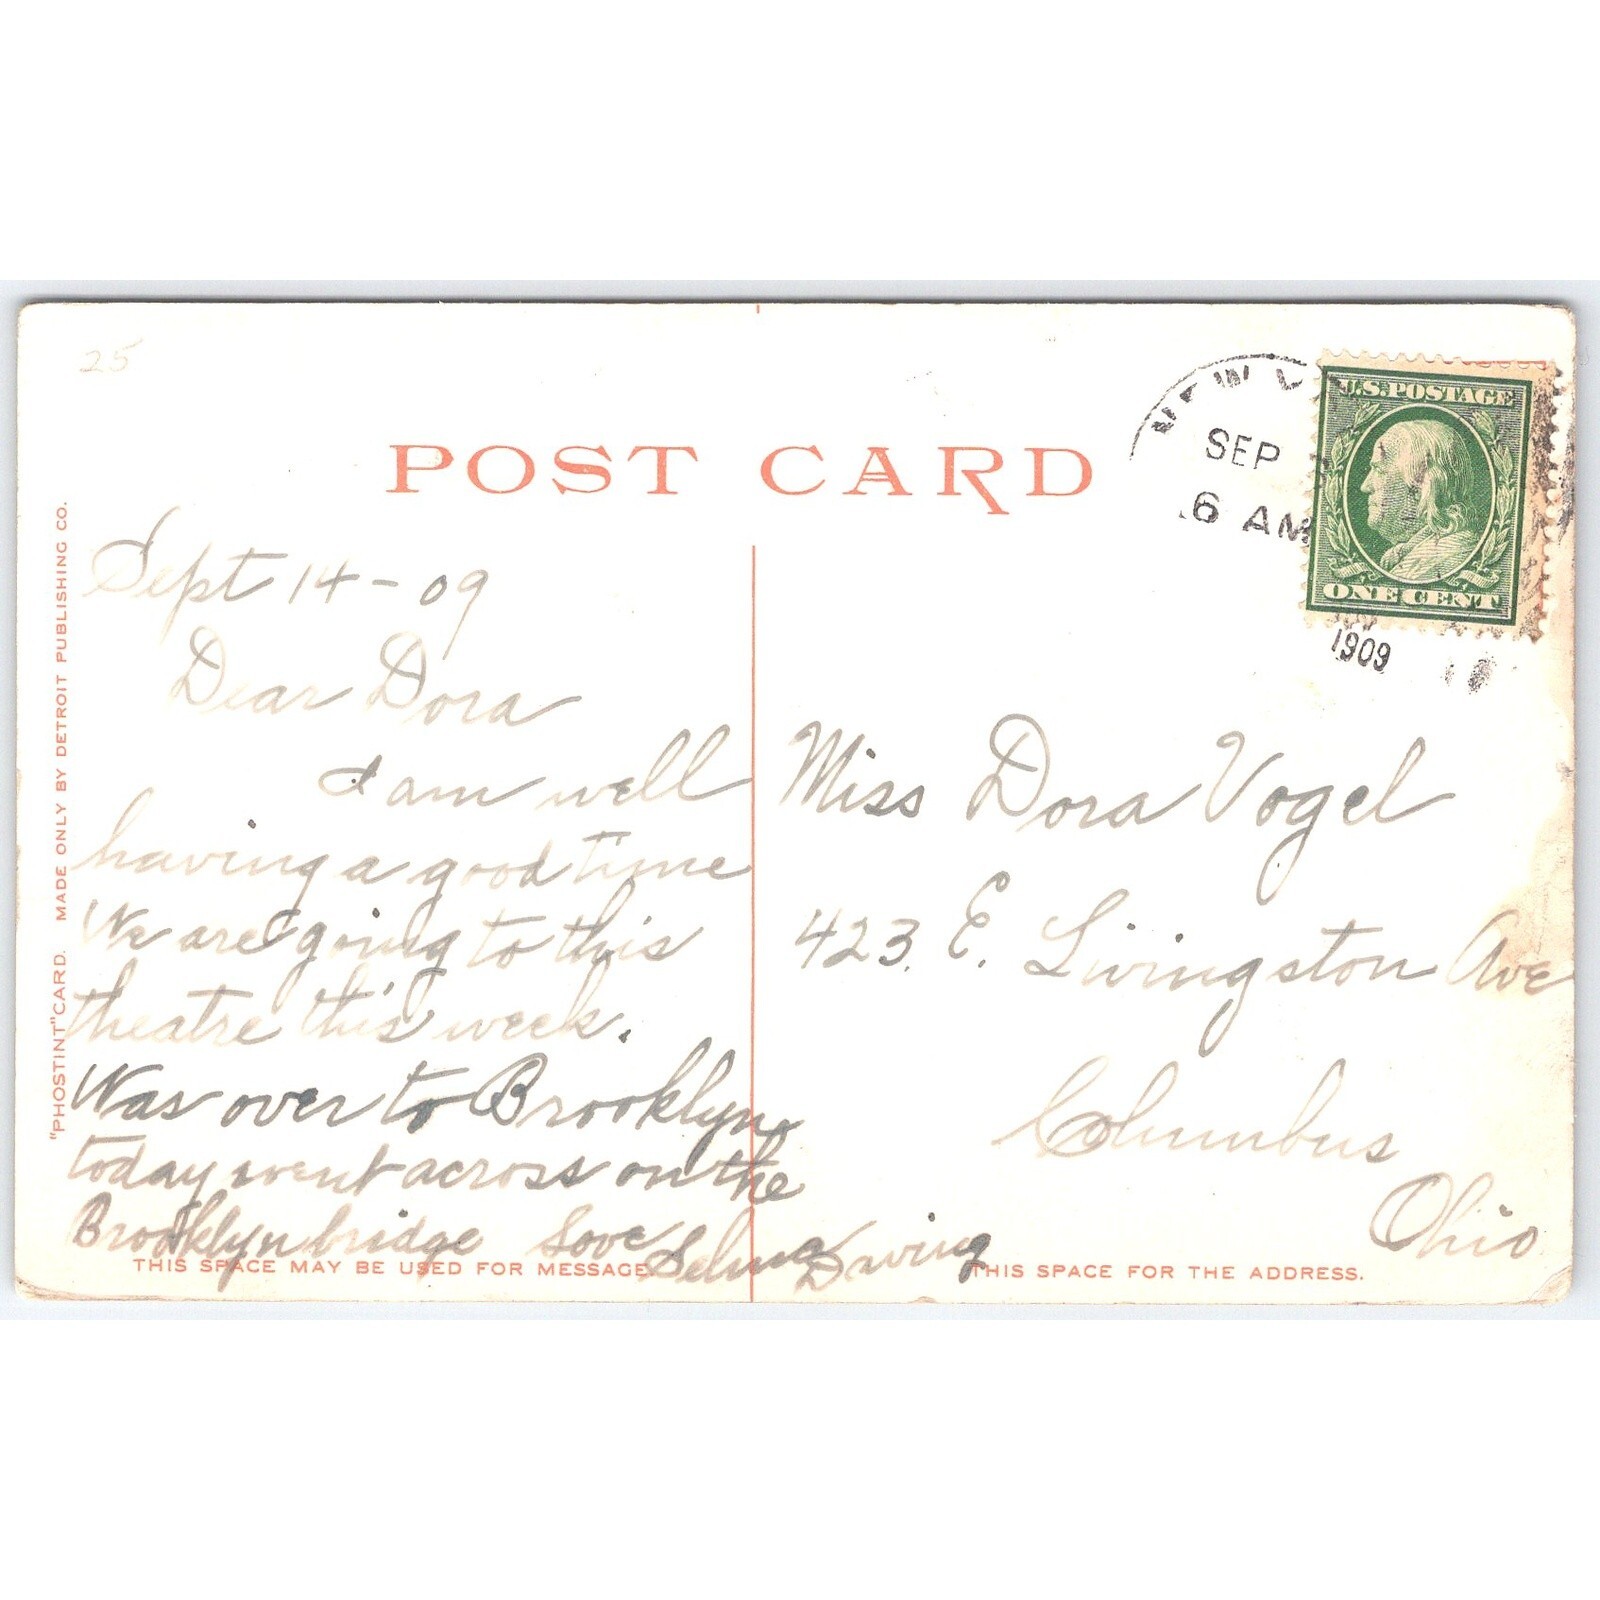 25
POST CARD
NEW Y
SEP
6 AM
1909
U.S. POSTAGE
ONE CENT
"PHOSTINT" CARD. MADE ONLY BY DETROIT PUBLISHING CO.
Sept 14-09
Dear Dora
I am well
having a good time
We are going to this
theatre this week.
Was over to Brooklyn
today went across on the
Brooklyn bridge Love Selma
THIS SPACE MAY BE USED FOR MESSAGE.
Miss Dora Vogel
423. E. Livingston Ave
Columbus
Ohio
THIS SPACE FOR THE ADDRESS.